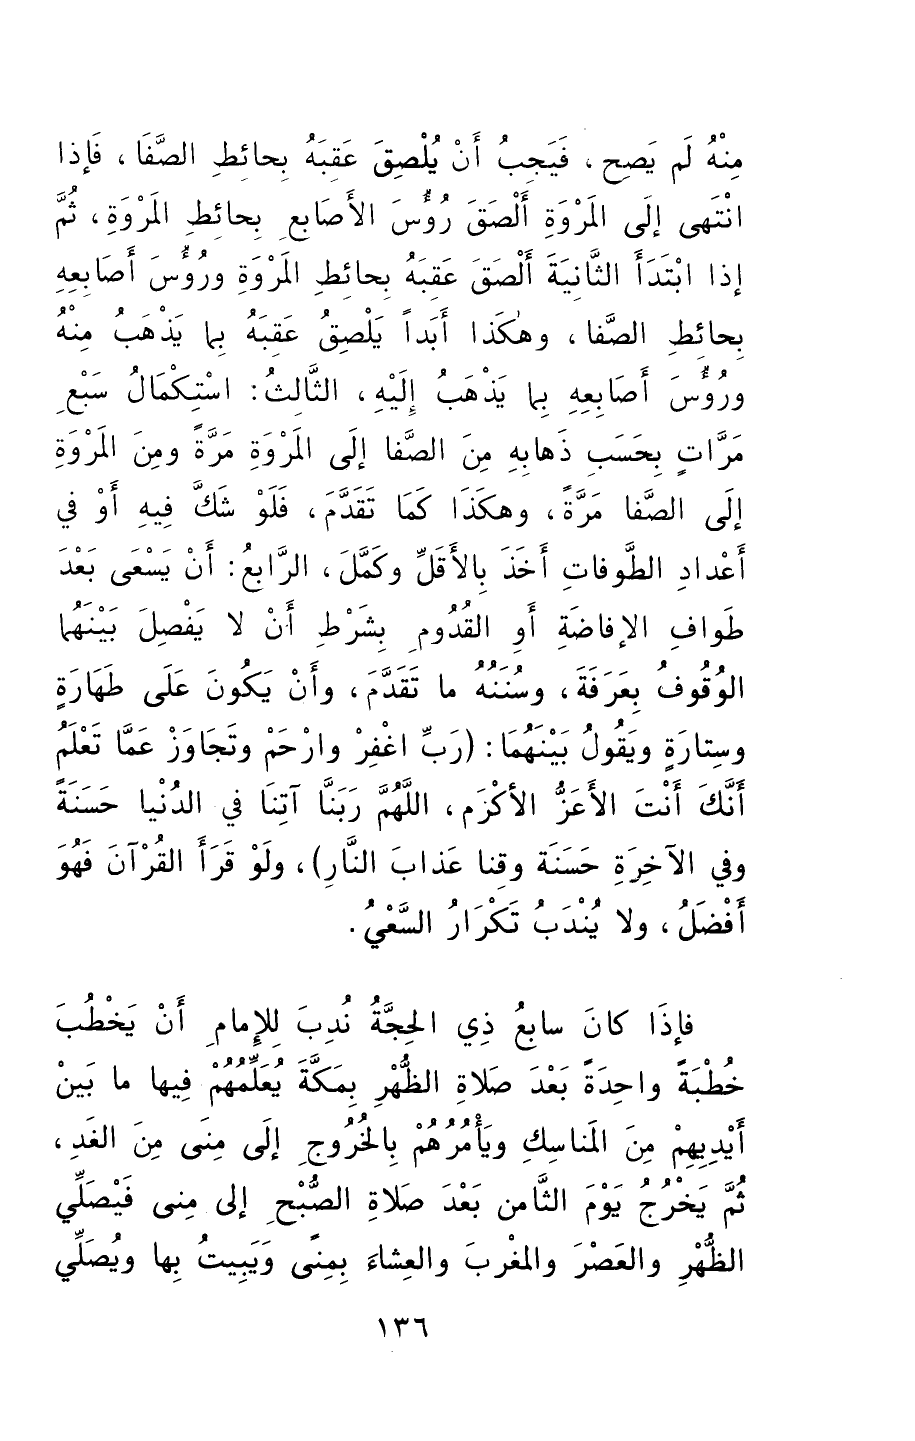 مِنْهُ لَم يَصِح ، فَيَجِبُ أَنْ يُلْصِقَ عَقِبَهُ بِحائِطِ الصَّفَا ، فَإذا
انْتَهى إلَى المَرْوَةِ أَلْصَقَ رُؤُسَ الأَصَابِعِ بِحائطِ المَرْوَةِ ، ثُمَّ
إذا ابْتَدَأَ الثَّانِيَةَ أَلْصَقَ عَقِبَهُ بِحائطِ المَرْوَةِ ورُؤُسَ أَصَابِعِهِ
بِحائطِ الصَّفا ، وهٰكَذا أَبَداً يَلْصِقُ عَقِبَهُ بِما يَذْهَبُ مِنْهُ
ورُؤُسَ أَصَابِعِهِ بِما يَذْهَبُ إِلَيْهِ ، الثَّالثُ : اسْتِكْمَالُ سَبْعِ
مَرَّاتٍ بِحَسَبِ ذَهابِهِ مِنَ الصَّفا إلَى المَرْوَةِ مَرَّةً ومِنَ المَرْوَةِ
إلَى الصَّفا مَرَّةً ، وهكَذَا كَمَا تَقَدَّمَ ، فَلَوْ شَكَّ فِيهِ أَوْ في
أَعْدادِ الطَّوفاتِ أَخَذَ بِالأَقَلِّ وكَمَّلَ ، الرَّابعُ : أَنْ يَسْعَى بَعْدَ
طَوافِ الإفاضَةِ أَوِ القُدُومِ بِشَرْطِ أَنْ لا يَفْصِلَ بَيْنَهُما
الوُقُوفُ بِعَرَفَةَ ، وسُنَنُهُ ما تَقَدَّمَ ، وأَنْ يَكُونَ عَلَى طَهَارَةٍ
وسِتارَةٍ ويَقُولُ بَيْنَهُمَا : (رَبِّ اغْفِرْ وارْحَمْ وتَجَاوَزْ عَمَّا تَعْلَمُ
أَنَّكَ أَنْتَ الأَعَزُّ الأكْرَم ، اللَّهُمَّ رَبَنَّا آتِنَا في الدُنْيا حَسَنَةً
وفي الآخِرَةِ حَسَنَة وقِنا عَذابَ النَّارِ) ، ولَوْ قَرَأَ القُرْآنَ فَهُوَ
أَفْضَلُ ، ولا يُنْدَبُ تَكْرَارُ السَّعْيُ .
فإذَا كانَ سابِعُ ذِي الحِجَّةُ نُدِبَ لِلإمامِ أَنْ يَخْطُبَ
خُطْبَةً واحِدَةً بَعْدَ صَلاةِ الظُّهْرِ بِمَكَّةَ يُعَلِّمُهُمْ فِيها ما بَينْ
أَيْدِيِهِمْ مِنَ المَناسِكِ ويَأْمُرُهُمْ بِالخُرُوجِ إلَى مِنَى مِنَ الغَدِ ،
ثُمَّ يَخْرُجُ يَوْمَ الثَّامن بَعْدَ صَلاةِ الصُّبْحِ إلى مِنى فَيْصَلِّي
الظُّهْرِ والعَصْرَ والمغْربَ والعِشاءَ بِمِنًى وَيَبِيتُ بِها ويُصَلِّي
١٣٦